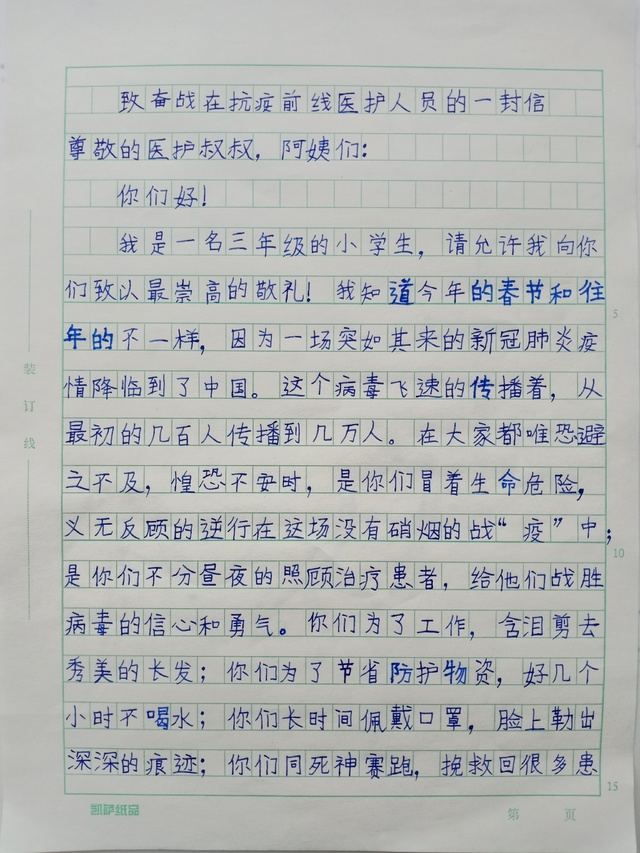 致奋战在抗疫前线医护人员的一封信
尊敬的医护叔叔，阿姨们：
你们好！
我是一名三年级的小学生，请允许我向你
们致以最崇高的敬礼！我知道今年的春节和往
5
年的不一样，因为一场突如其来的新冠肺炎疫
情降临到了中国。这个病毒飞速的传播着，从
最初的几百人传播到几万人。在大家都唯恐避
之不及，惶恐不安时，是你们冒着生命危险，
义无反顾的逆行在这场没有硝烟的战“疫”中；
10
是你们不分昼夜的照顾治疗患者，给他们战胜
病毒的信心和勇气。你们为了工作，含泪剪去
秀美的长发；你们为了节省防护物资，好几个
小时不喝水；你们长时间佩戴口罩，脸上勒出
深深的痕迹；你们同死神赛跑，挽救回很多患
15
装订线
凯萨纸品
第 页